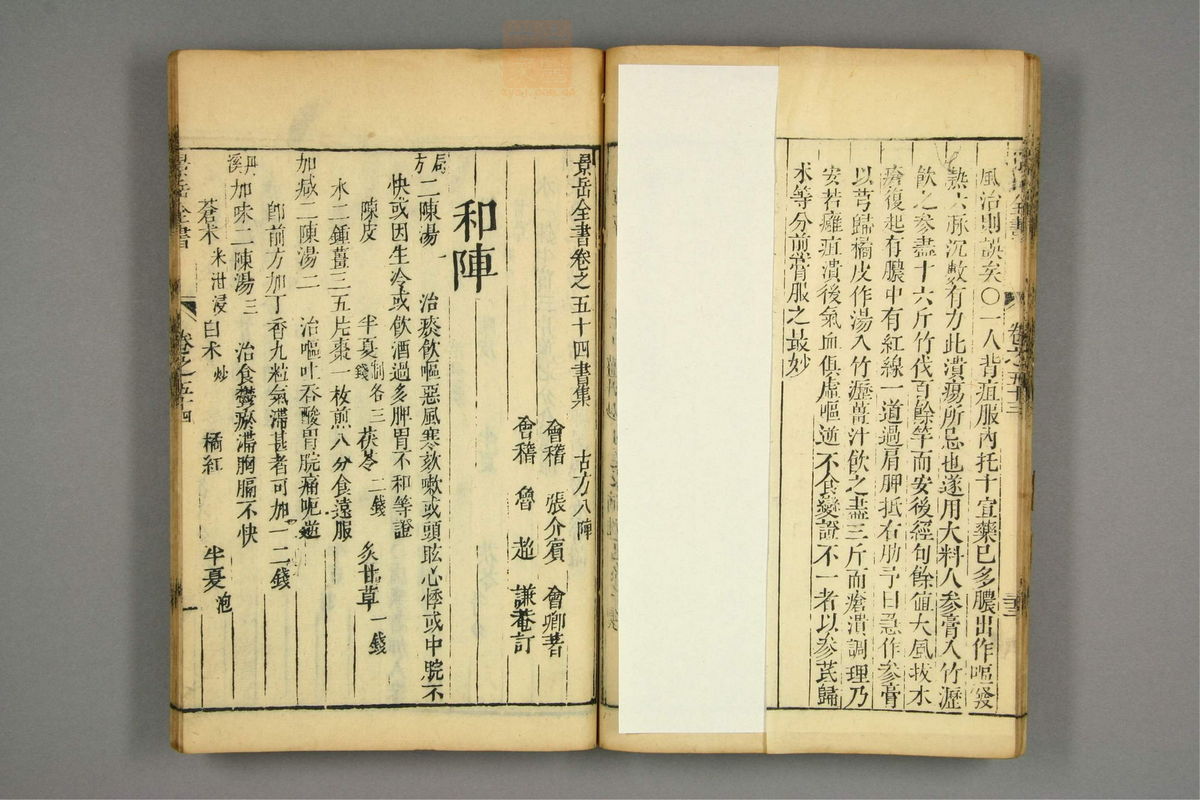 風治則誤矣○一人背疽服內托十宣藥已多膿出作嘔發
熱六脉沉數有力此潰瘍所忌也遂用大料人參膏入竹瀝
飲之參盡十六斤竹伐百餘竿而安後經旬餘値大風拔木
瘡復起有膿中有紅線一道過肩胛抵右肋予曰急作參膏
以芎歸橘皮作湯入竹瀝薑汁飲之盡三斤而瘡潰調理乃
安若癰疽潰後氣血俱虛嘔逆不食變證不一者以參芪歸
术等分煎膏服之最妙
卷之五十三
景岳全書卷之五十四書集 古方八陣
會稽 張介賓 會卿著
會稽 魯超 謙菴訂
和陣
局方二陳湯一 治痰飲嘔惡風寒欬嗽或頭眩心悸或中脘不
快或因生冷或飲酒過多脾胃不和等證
陳皮 半夏制各三錢 茯苓二錢 炙甘草一錢
水二鍾薑三五片棗一枚煎八分食遠服
加減二陳湯二 治嘔吐吞酸胃脘痛呃逆
卽前方加丁香九粒氣滯甚者可加一二錢
丹溪加味二陳湯三 治食鬱痰滯胸膈不快
蒼朮米泔浸 白朮炒 橘紅 半夏泡
景岳全書 卷之五十四 一